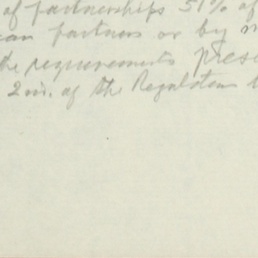 of partnerships 51% of
can partners or by m
the requirements pres
2nd. of the Regulations